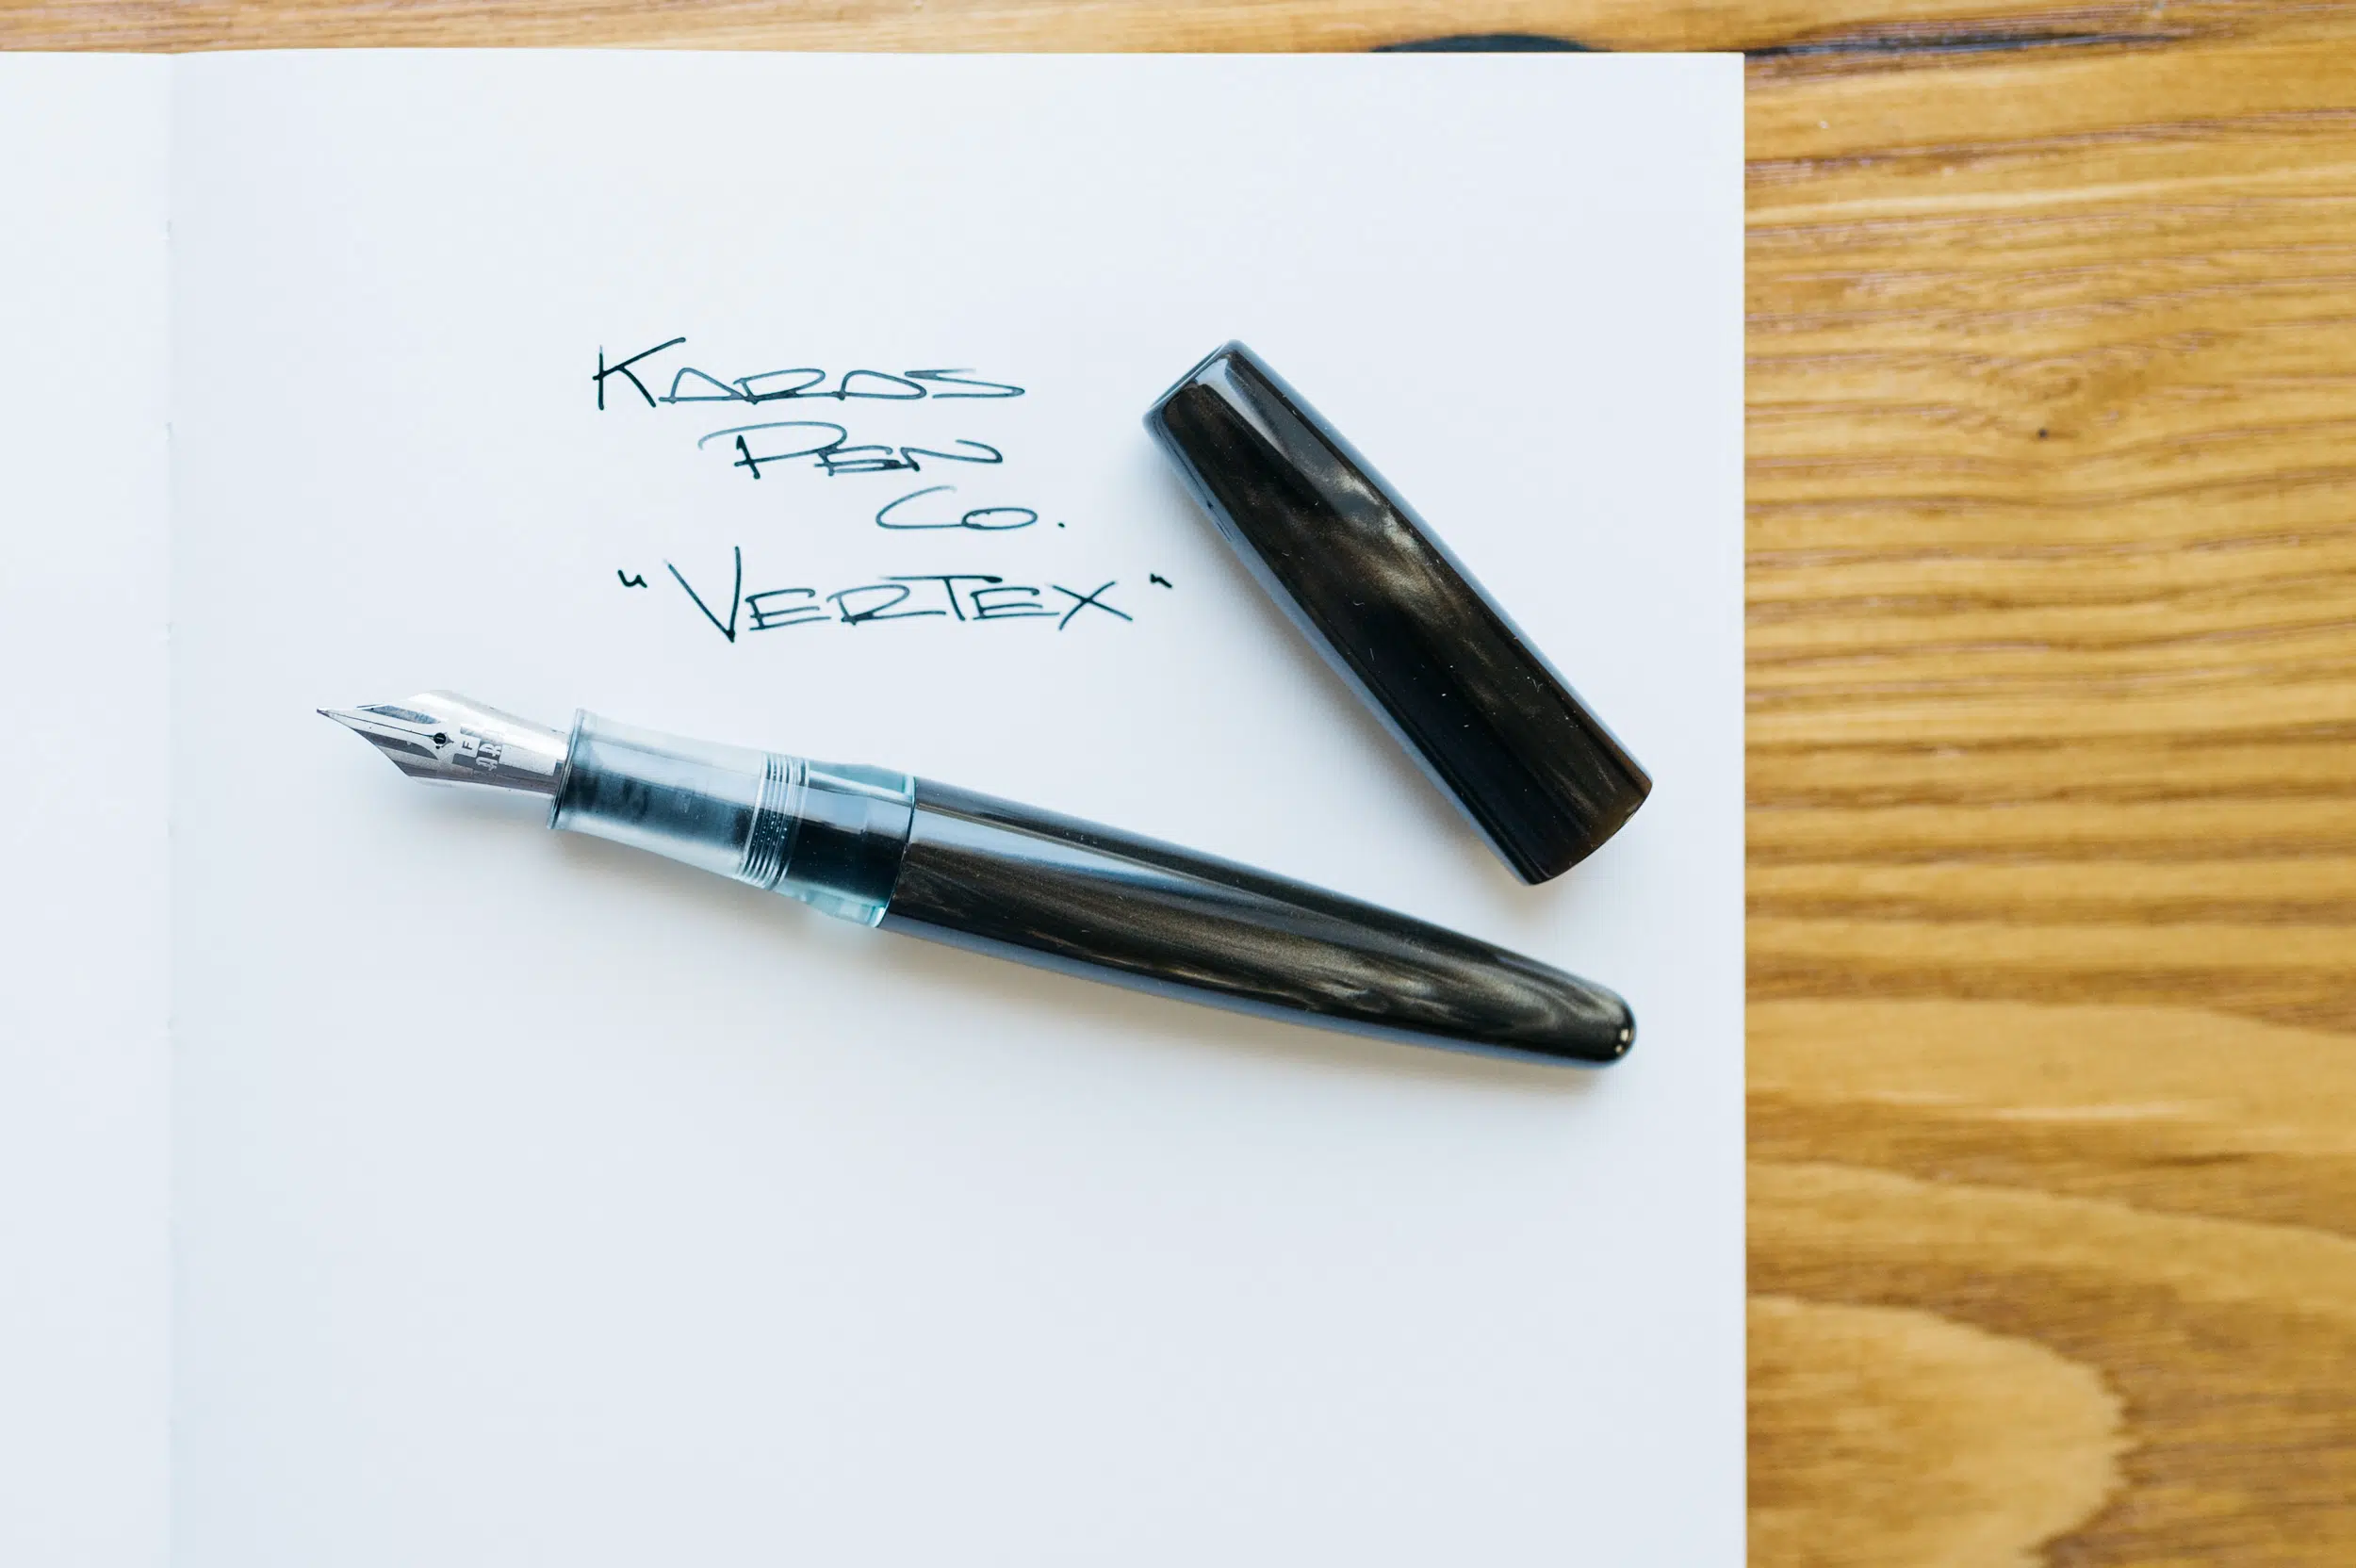 KARAS
PEN
CO.
"VERTEX"